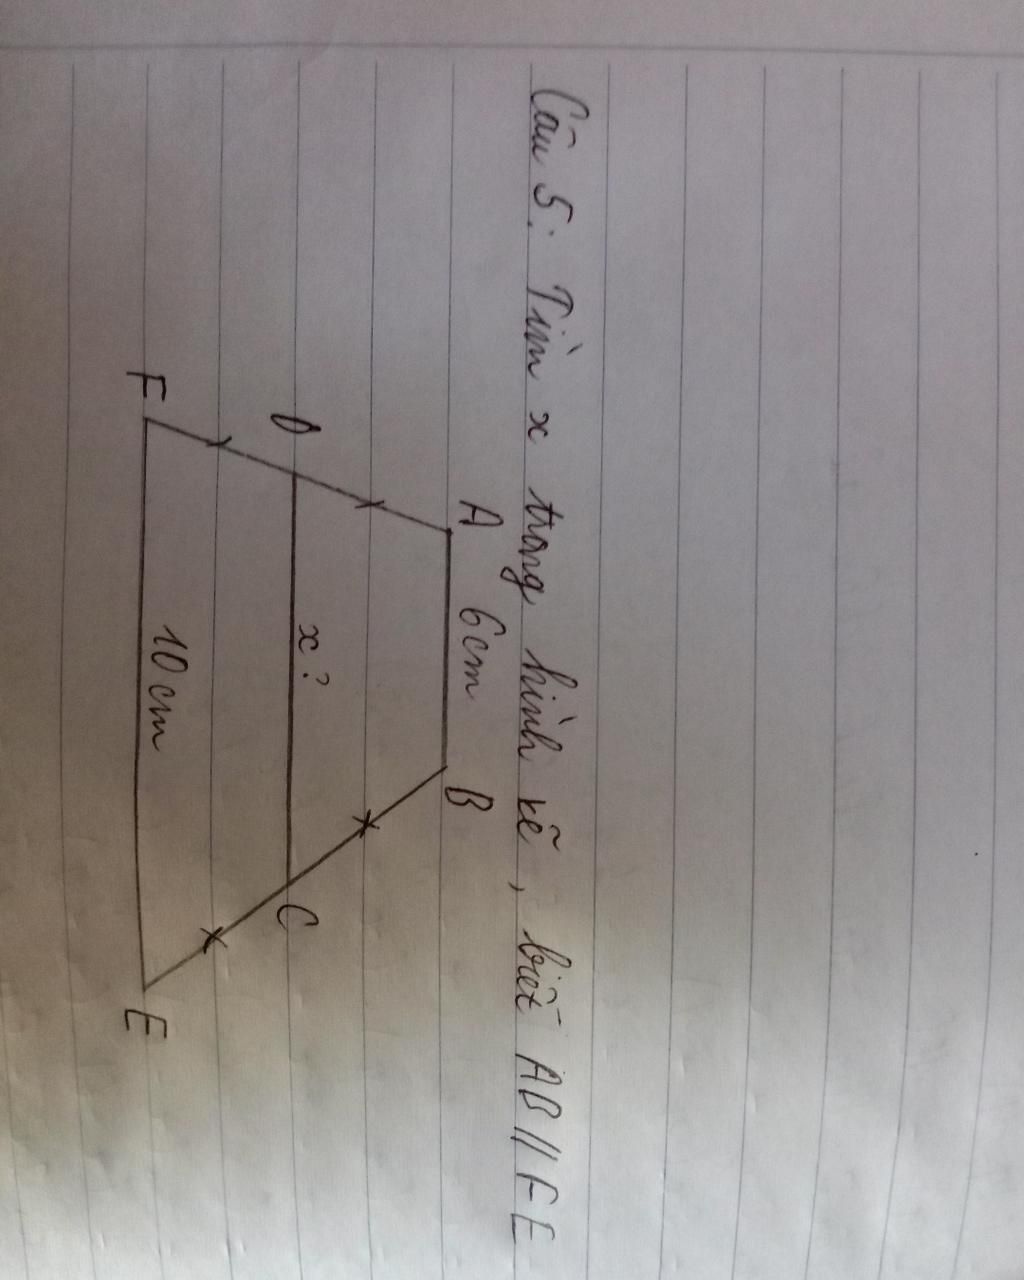 Câu 5: Tìm x trong hình vẽ, biết AB // FE
A 6cm B
D x? C
F 10cm E